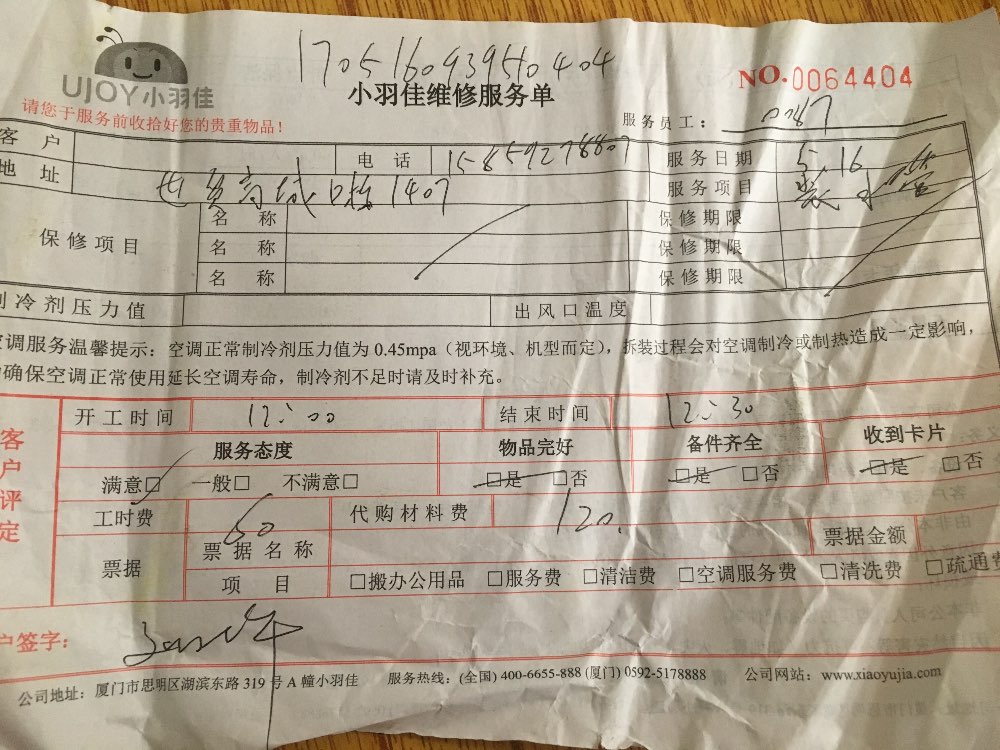 170516093950404
UJOY小羽佳
小羽佳维修服务单
NO.0064404
请您于服务前收拾好您的贵重物品！
服务员工： 0087
客户 电话 15859278807 服务日期 5.16
地址 世贸商城 1407 服务项目
保修项目 名称 保修期限
名称 保修期限
名称 保修期限
制冷剂压力值 出风口温度
空调服务温馨提示：空调正常制冷剂压力值为0.45mpa（视环境、机型而定），拆装过程会对空调制冷或制热造成一定影响，
确保空调正常使用延长空调寿命，制冷剂不足时请及时补充。
客户评定
开工时间 12:00 结束时间 12:30
服务态度 物品完好 备件齐全 收到卡片
满意□ 一般□ 不满意□ □是 □否 □是 □否 □是 □否
工时费 50 代购材料费 120.
票据 票据名称 票据金额
项目 □搬办公用品 □服务费 □清洁费 □空调服务费 □清洗费 □疏通费
户签字：
公司地址：厦门市思明区湖滨东路319号A幢小羽佳 服务热线：(全国) 400-6655-888 (厦门) 0592-5178888 公司网站：www.xiaoyujia.com